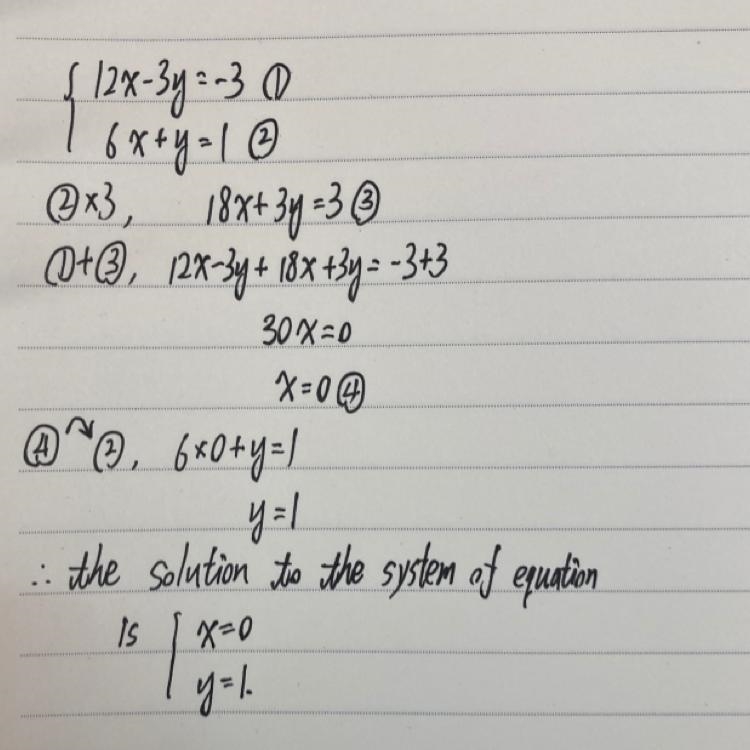 { 12x-3y=-3 ①
6x+y=1 ②
②×3, 18x+3y=3 ③
①+③, 12x-3y+18x+3y=-3+3
30x=0
x=0 ④
④↷②, 6×0+y=1
y=1
∴ the solution to the system of equation
is { x=0
y=1.